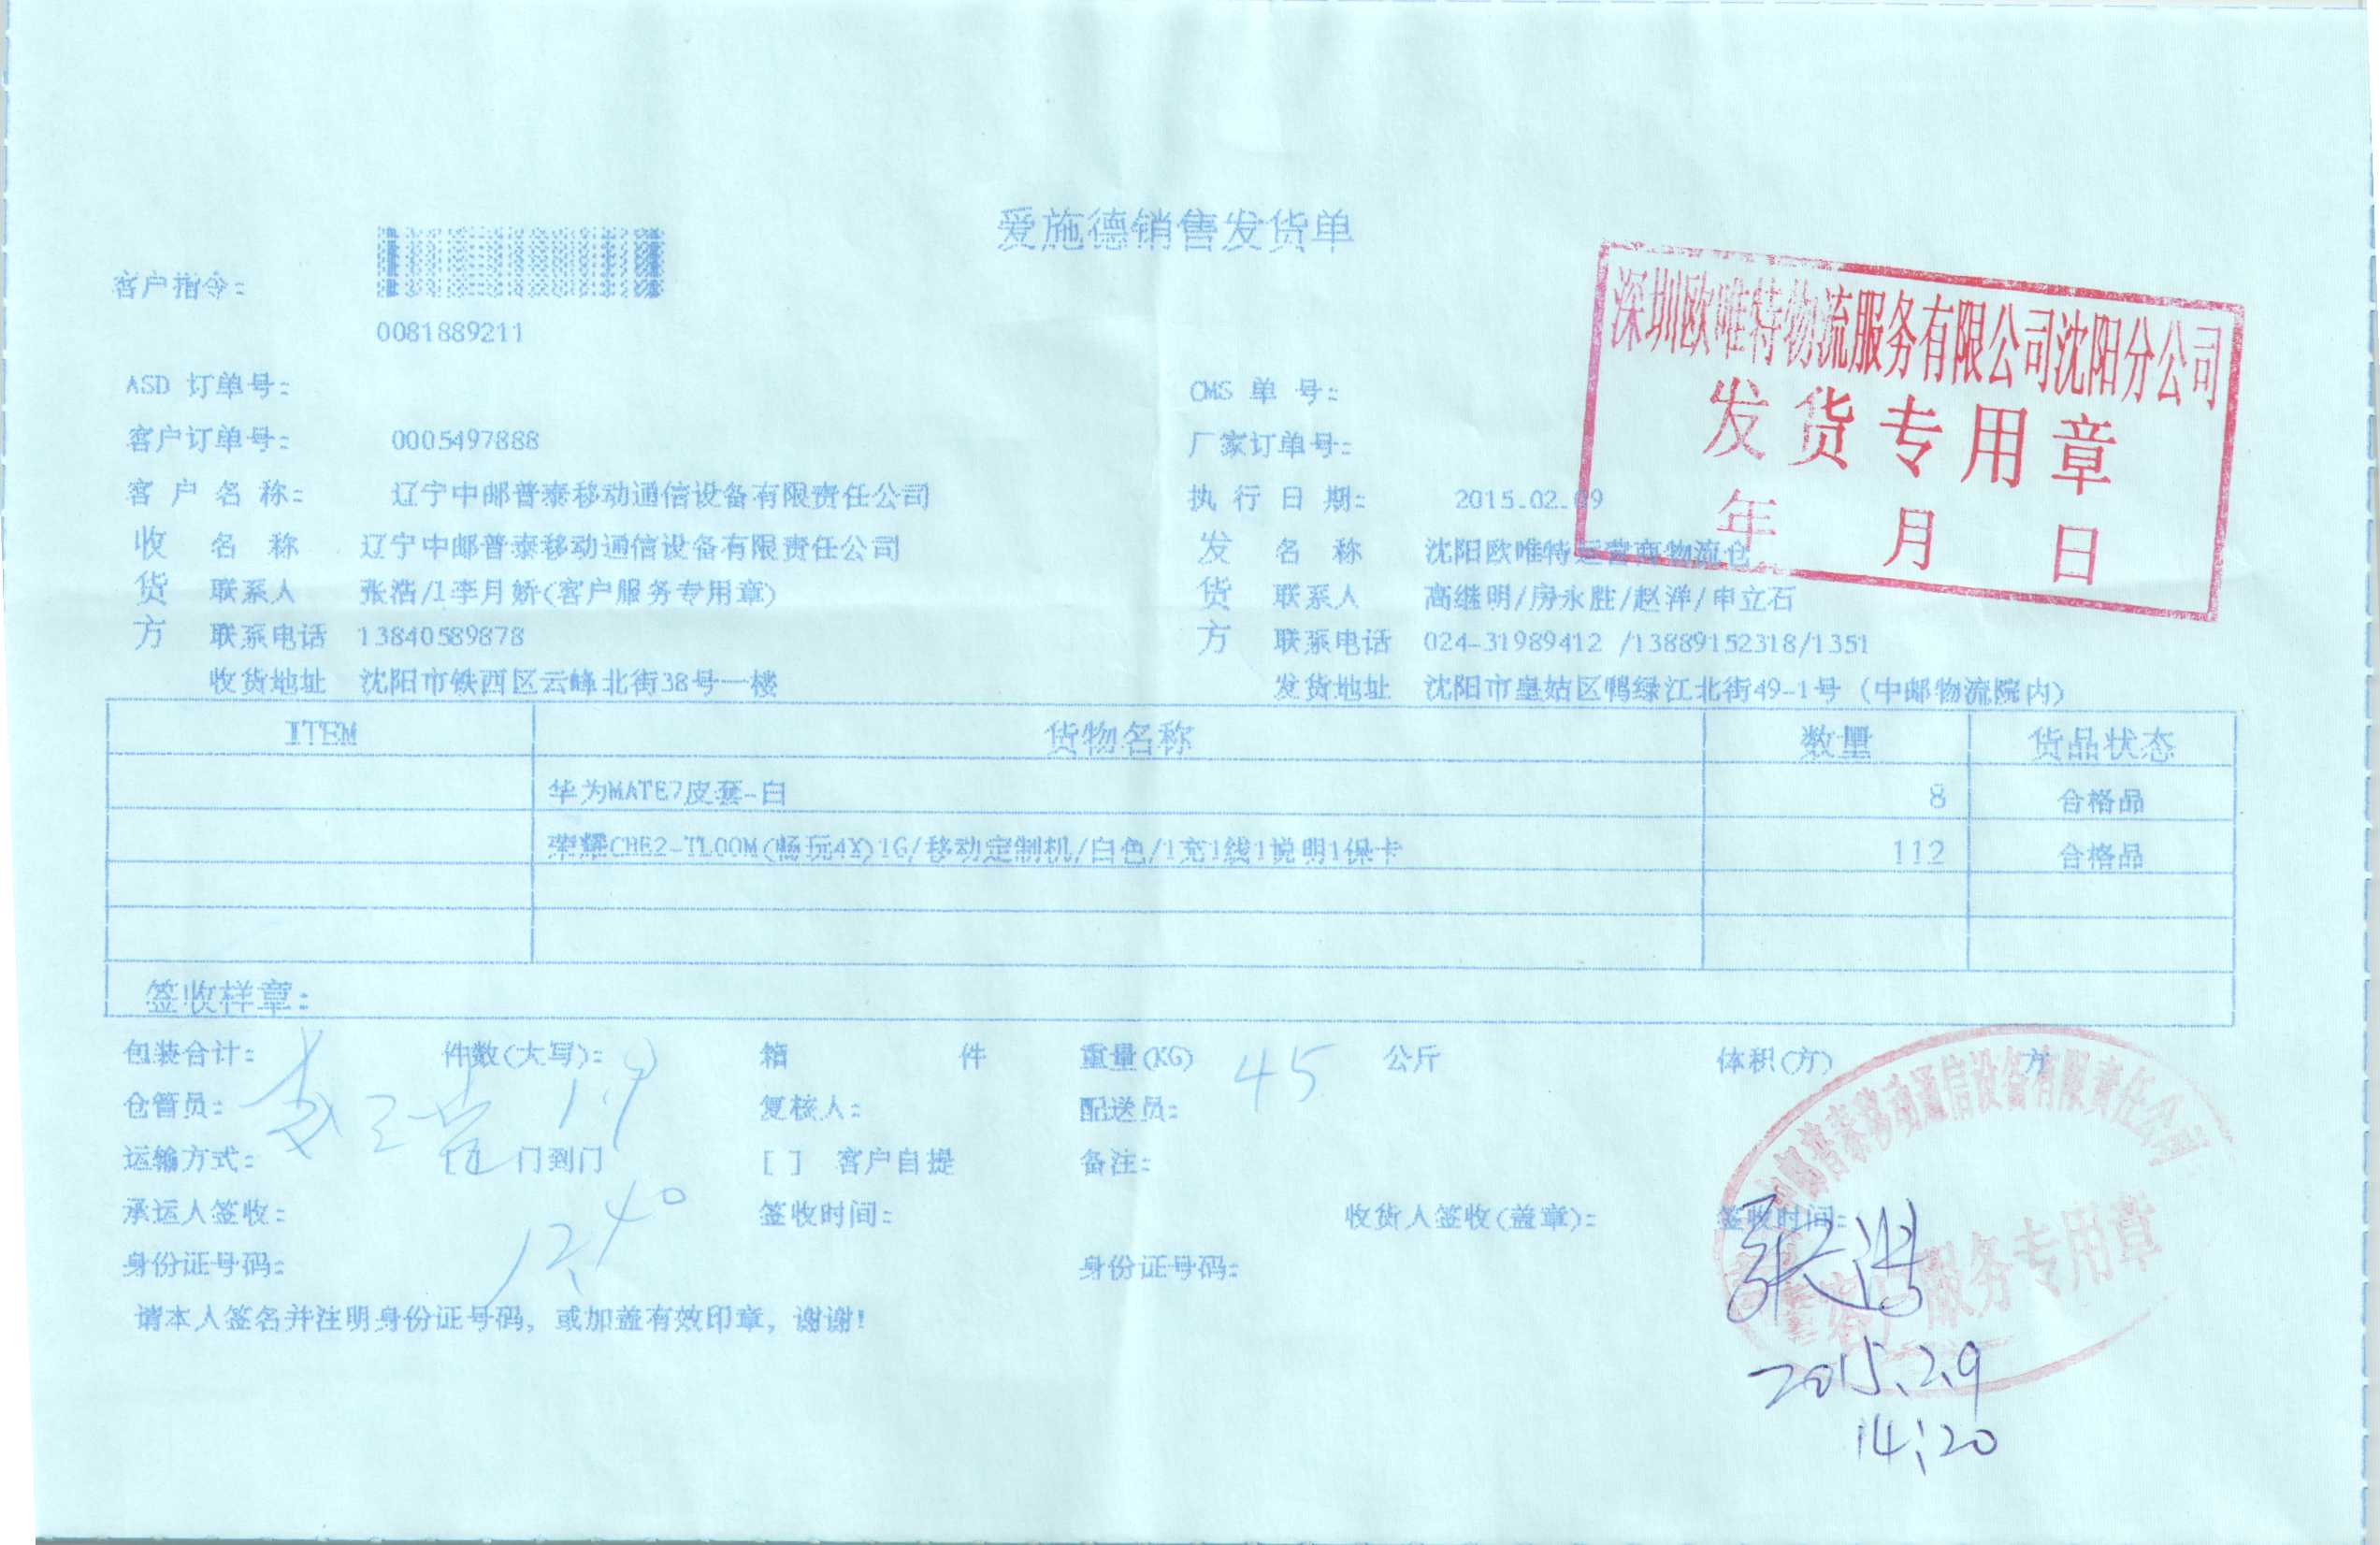 爱施德销售发货单
客户指令:
0081889211
深圳欧唯特物流服务有限公司沈阳分公司
发货专用章
年 月 日
ASD 订单号: CMS 单 号:
客户订单号: 0005497888 厂家订单号:
客 户 名 称: 辽宁中邮普泰移动通信设备有限责任公司 执 行 日 期: 2015.02.09
收 名 称 辽宁中邮普泰移动通信设备有限责任公司 发 名 称 沈阳欧唯特运营商物流仓
货 联系人 张浩/1李月娇(客户服务专用章) 货 联系人 高继明/房永胜/赵洋/申立石
方 联系电话 13840589878 方 联系电话 024-31989412 /13889152318/1351
收货地址 沈阳市铁西区云峰北街38号一楼 发货地址 沈阳市皇姑区鸭绿江北街49-1号 (中邮物流院内)
ITEM 货物名称 数量 货品状态
华为MATE7皮套-白 8 合格品
荣耀CHE2-TL00M(畅玩4X)1G/移动定制机/白色/1充1线1说明1保卡 112 合格品
签收样章:
包装合计: 件数(大写): 箱 件 重量(KG) 45 公斤 体积(方) 方
仓管员: 复核人: 配送员:
运输方式: 门到门 [ ] 客户自提 备注:
承运人签收: 签收时间: 收货人签收(盖章): 签收时间:
身份证号码: 12.40 身份证号码:
请本人签名并注明身份证号码, 或加盖有效印章, 谢谢!
中邮普泰移动通信设备有限责任公司
客户服务专用章
张浩
2015.2.9
14:20